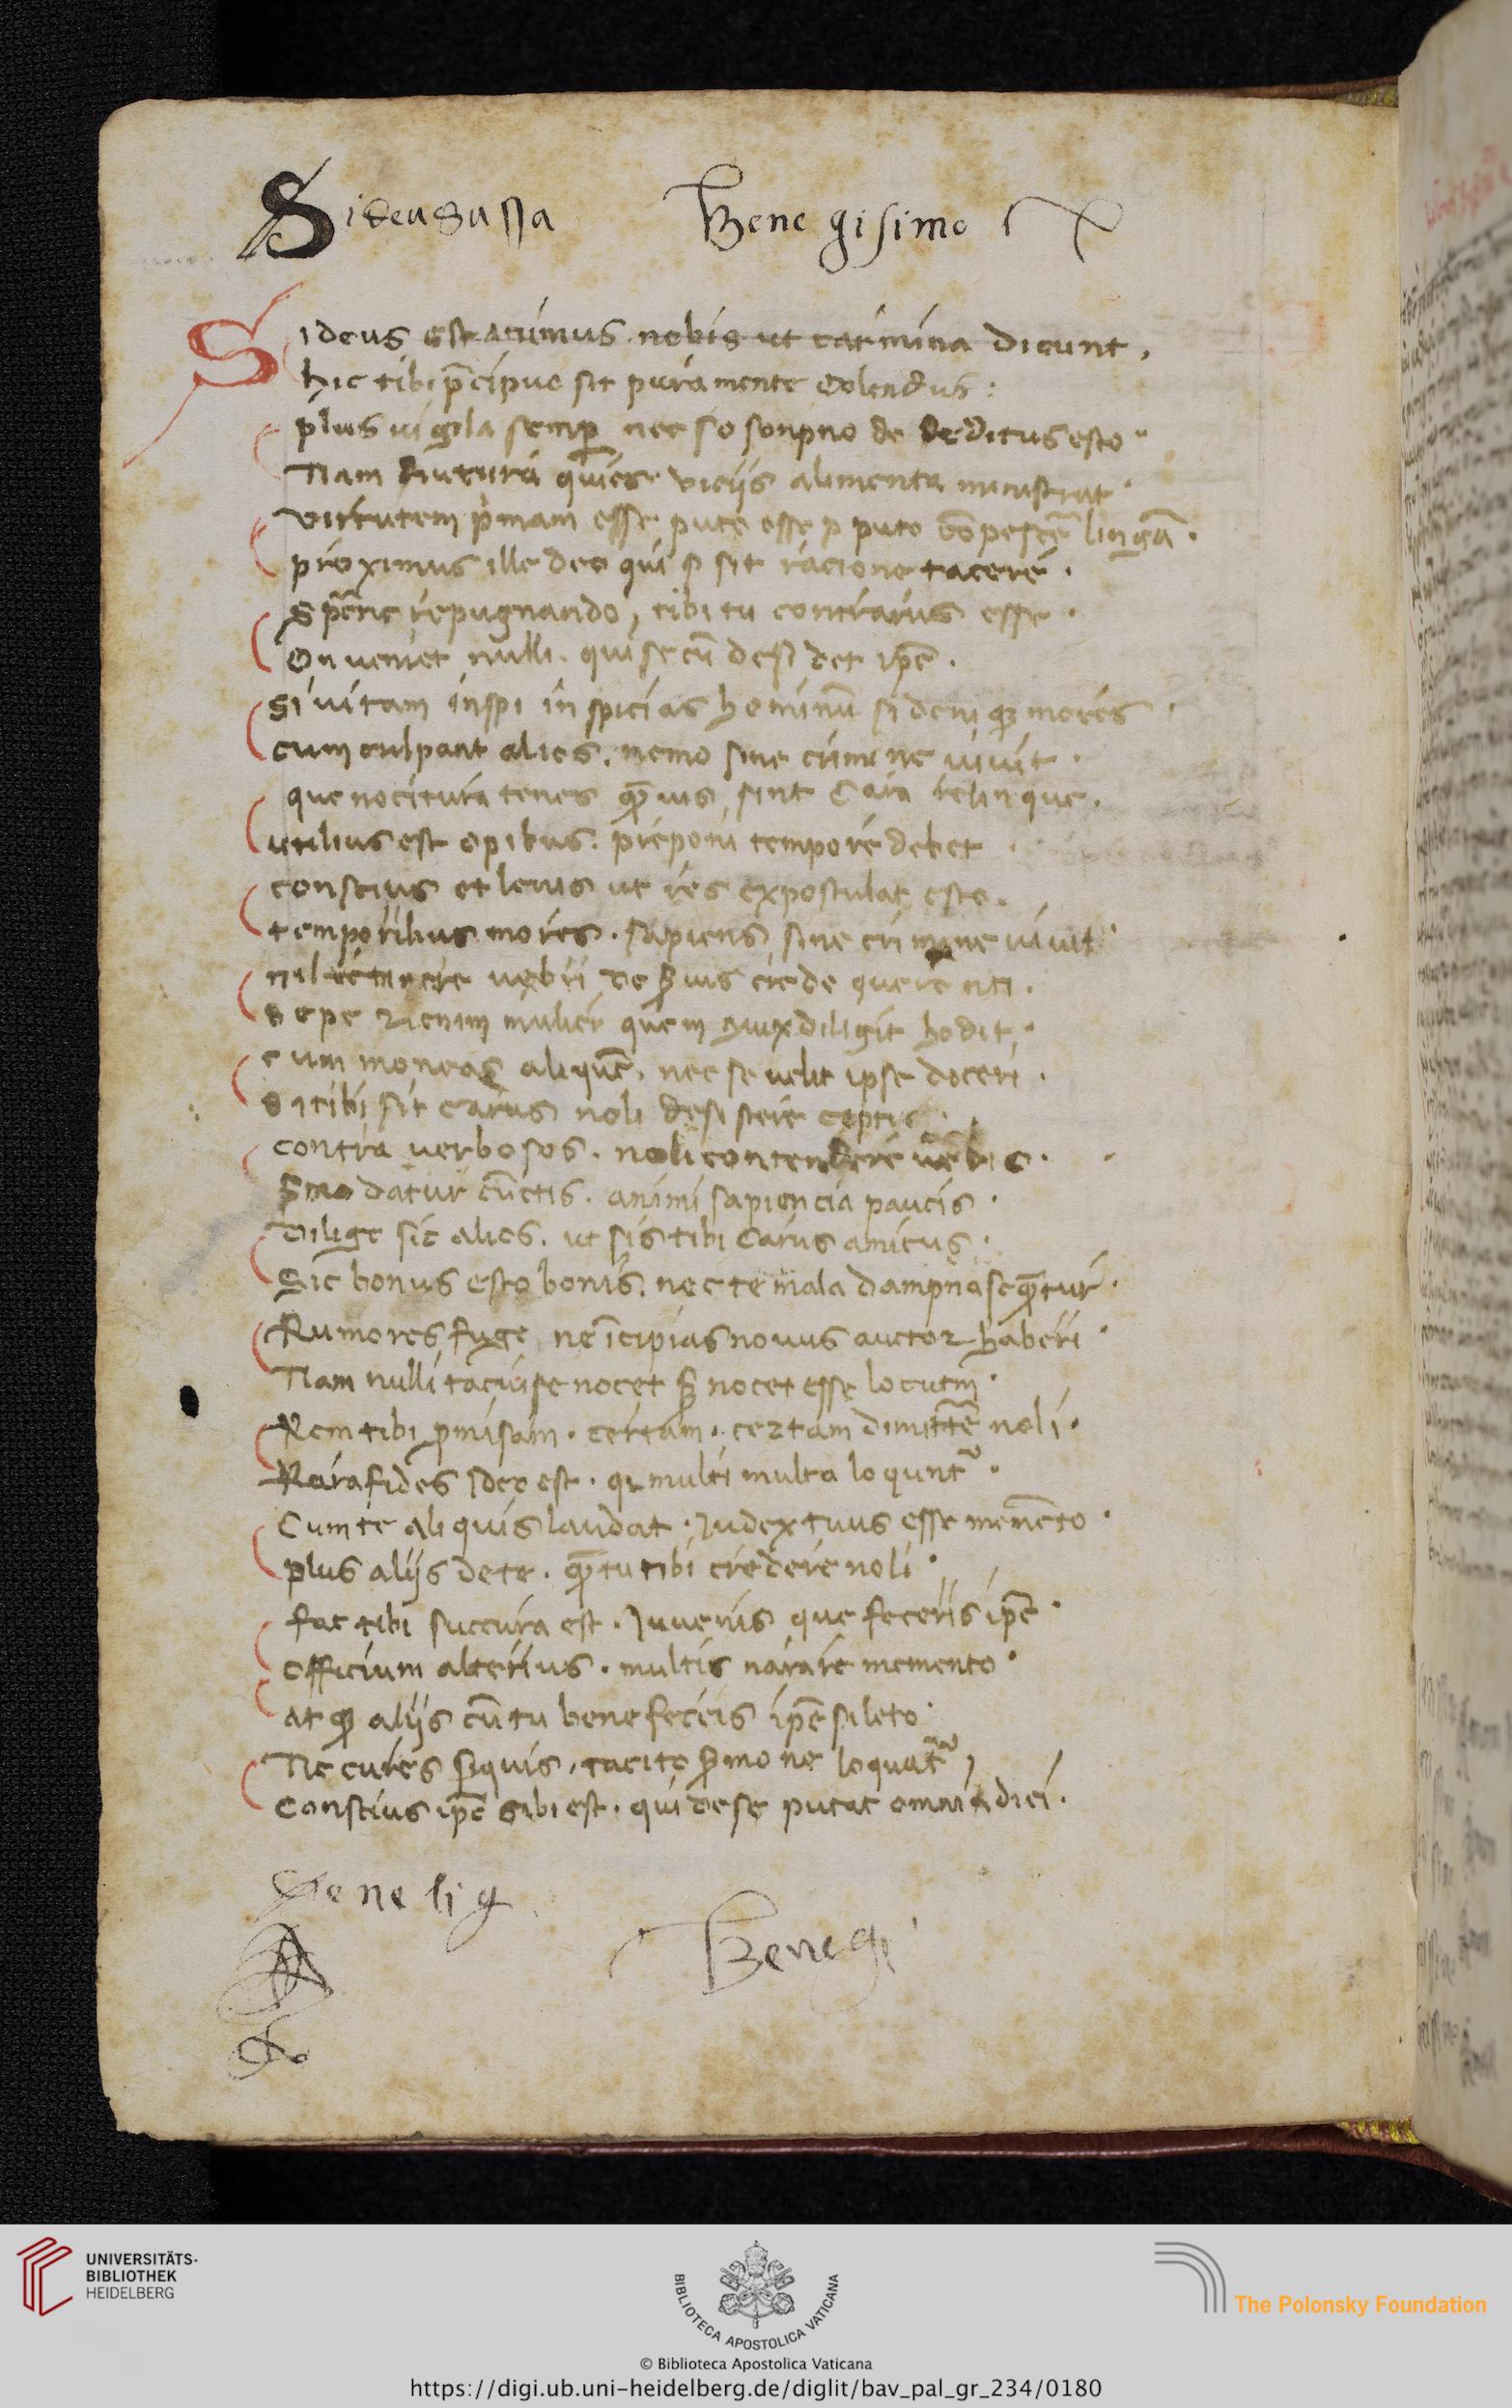 Sideusassa Bene gisimo
Si deus est animus nobis ut carmina dicunt,
hic tibi p̄cipue sit pura mente Colendus:
plus uigila semꝑ nec so sonpno de deditus esto
Nam diuturna quies vicijs alimenta ministrat
virtutem pͥmam esse pute esse p puto cōpescē lingā.
proximus ille deo qui sit racione tacere.
Sp̄ne repugnando, tibi tu contrarius esse.
Onueniet nulli. qui secū desidet ip̄e.
Si uitam inspi in spicias hominū si deniqꝫ mores
cum culpant alios. nemo sine crimine uiuit.
que nocitura tenes qͣ̄uis sint Cara relinque.
utilius est opibus. preponi tempore debet
constius et lenis ut res expostulat esto.
temporibus mores. sapiens sine crimine uiuit
nil uebri de ẜuis crede querenti.
sepe enim mulier quem diligit hodit.
cum moneas aliquē. nec se uelit ipse doceri.
si tibi sit carus noli desistere ceptis
contra verbosos. noli contendere uerbis.
ẜmo datur cūctis. animi sapiencia paucis.
Dilige sic alios. ut sis tibi Carus amicus.
Sic bonus esto bonis. nec te mala dampna seqͣ̄tur.
Rumores fuge ne īcipias nouus auctor haberi
Nam nulli tacuise nocet ẜ nocet esse locutm
Rem tibi ꝓmisam. certam. certam dimittē noli.
Rara fides ideo est. qꝛ multi multa loqunt᷑.
Cum te aliquis laudat. Judex tuus esse memēto.
plus alijs de te. qͣ̄ tu tibi credere noli
fac tibi succura est. Juuenis que feceris ip̄e.
officium alterius. multis narare memento
atqꝫ alijs cū tu bene feceris ip̄e sileto
Ne cures siquis, tacito ẜmone loquat᷑
Constius ip̄e sibi est. qui de se putat omnia dici.
Bene lig
Benegi
UNIVERSITÄTS-
BIBLIOTHEK
HEIDELBERG
BIBLIOTECA APOSTOLICA VATICANA
The Polonsky Foundation
© Biblioteca Apostolica Vaticana
https://digi.ub.uni-heidelberg.de/diglit/bav_pal_gr_234/0180